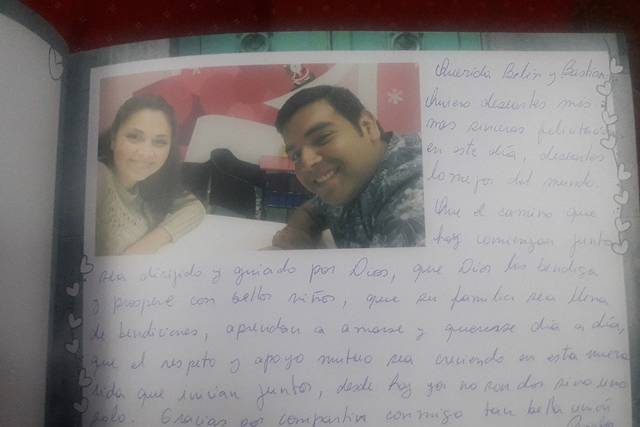 Querida Belen y Bastian:
Quiero desearles mis
mas sinceras felicitaciones
en este día, desearles
lo mejor del mundo.
Que el camino que
hoy comienzan juntos
sea dirigido y guiado por Dios, que Dios los bendiga
y prospere con bellos niños, que su familia sea llena
de bendiciones, aprendan a amarse y quererse día a día,
que el respeto y apoyo mutuo sea creciendo en esta nueva
vida que inician juntos, desde hoy ya no son dos sino uno
solo. Gracias por compartir conmigo tan bella unión